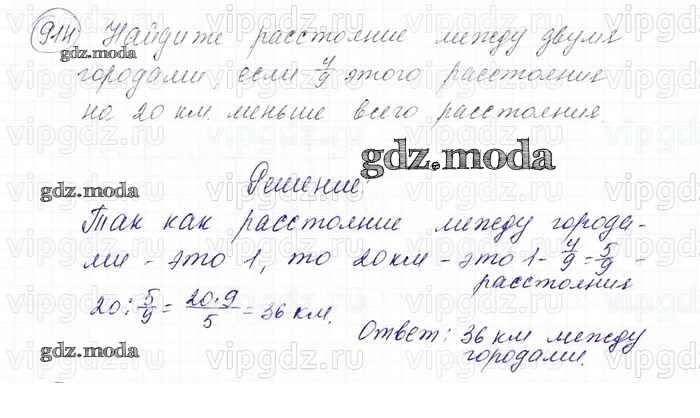 914 Найдите расстояние между двумя
городами, если 4/9 этого расстояния
на 20 км меньше всего расстояния.
gdz.moda
gdz.moda
Решение:
gdz.moda
Так как расстояние между города-
ми - это 1, то 20 км - это 1 - 4/9 = 5/9 -
расстояния
20 : 5/9 = 20·9/5 = 36 км.
Ответ: 36 км между
городами.
gdz.moda
vipgdz.ru